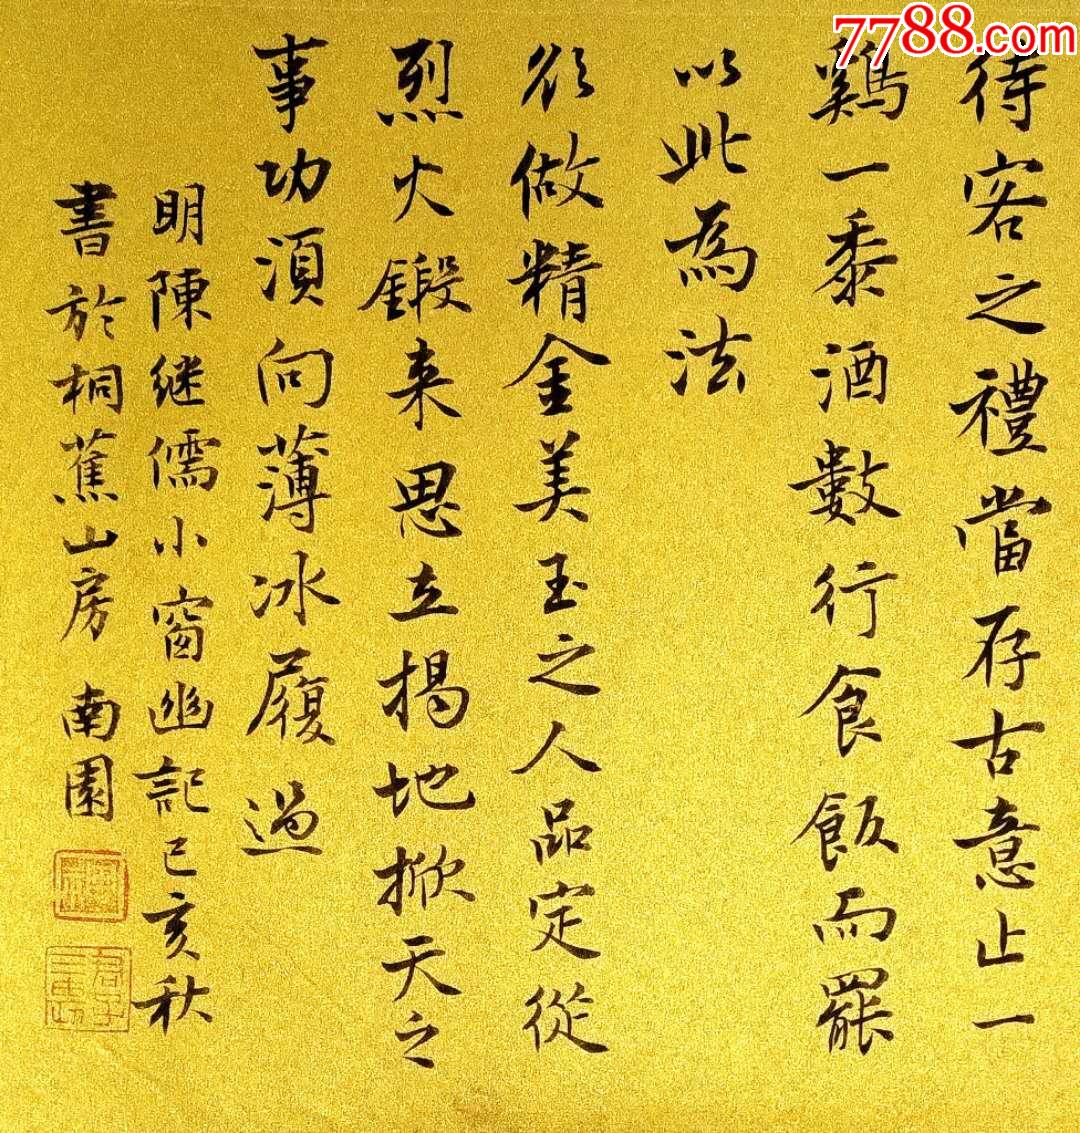 7788.com
待客之禮當存古意止一
鷄一黍酒數行食飯而罷
以此為法
欲做精金美玉之人品定從
烈火鍛来思立揭地掀天之
事功須向薄冰履過
明陳继儒小窗幽記己亥秋
書於桐蕉山房 南園